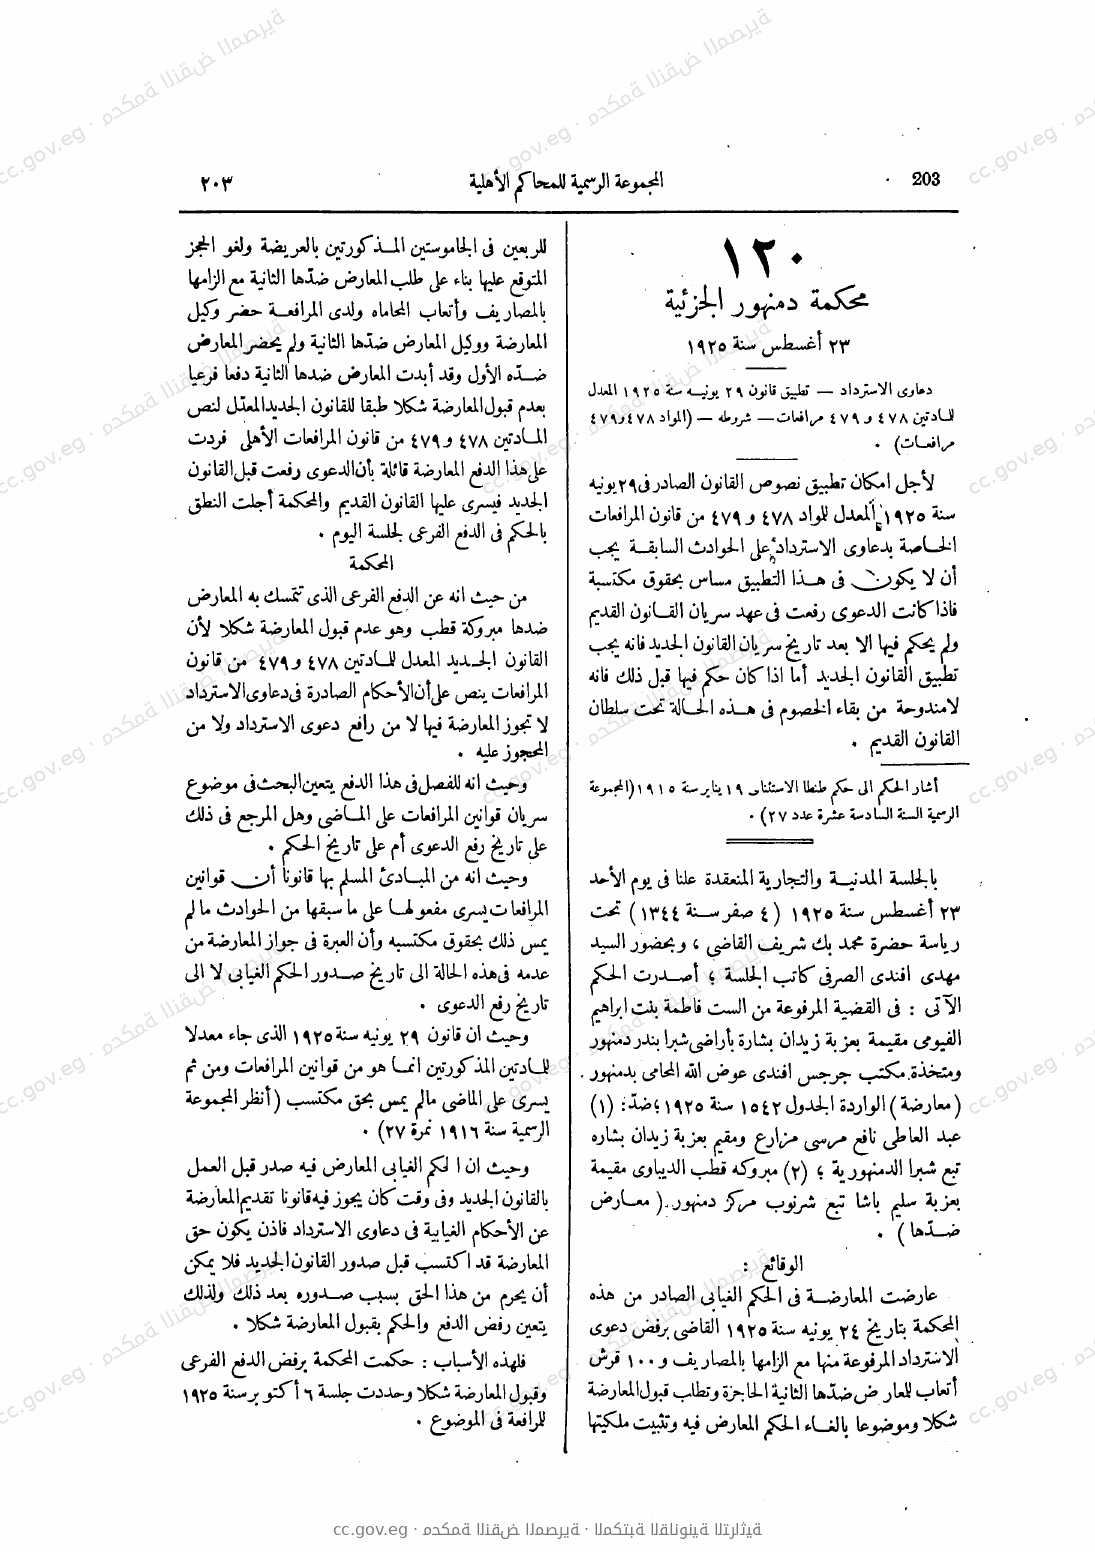 203
المجموعة الرسمية للمحاكم الأهلية
٢٠٣
١٢٠
محكمة دمنهور الجزئية
٢٣ أغسطس سنة ١٩٢٥
دعاوى الاسترداد — تطبيق قانون ٢٩ يونيه سنة ١٩٢٥ المعدل
للمادتين ٤٧٨ و ٤٧٩ مرافعات — شروطه — (المواد ٤٧٨ و ٤٧٩
مرافعات) .
لأجل امكان تطبيق نصوص القانون الصادر فى ٢٩ يونيه
سنة ١٩٢٥ المعدل للمواد ٤٧٨ و ٤٧٩ من قانون المرافعات
الخاصة بدعاوى الاسترداد على الحوادث السابقة يجب
أن لا يكون فى هذا التطبيق مساس بحقوق مكتسبة
فاذا كانت الدعوى رفعت فى عهد سريان القانون القديم
ولم يحكم فيها الا بعد تاريخ سريان القانون الجديد فانه يجب
تطبيق القانون الجديد أما اذا كان حكم فيها قبل ذلك فانه
لامندوحة من بقاء الخصوم فى هذه الحالة تحت سلطان
القانون القديم .
أشار الحكم الى حكم طنطا الاستئنافى ١٩ يناير سنة ١٩١٥ (المجموعة
الرسمية السنة السادسة عشرة عدد ٢٧) .
بالجلسة المدنية والتجارية المنعقدة علنا فى يوم الأحد
٢٣ أغسطس سنة ١٩٢٥ (٤ صفر سنة ١٣٤٤) تحت
رياسة حضرة محمد بك شريف القاضى ، وبحضور السيد
مهدى افندى الصرفى كاتب الجلسة ؛ أصدرت الحكم
الآتى : فى القضية المرفوعة من الست فاطمة بنت ابراهيم
الفيومى مقيمة بعزبة زيدان بشارة بأراضى شبرا بندر دمنهور
ومتخذة مكتب جرجس افندى عوض الله المحامى بدمنهور .
(معارضة) الواردة الجدول ١٥٤٢ سنة ١٩٢٥ ؛ ضدّ : (١)
عبد العاطى نافع مرسى مزارع ومقيم بعزبة زيدان بشاره
تبع شبرا الدمنهورية ؛ (٢) مبروكه قطب الديباوى مقيمة
بعزبة سليم باشا تبع شرنوب مركز دمنهور . (معارض
ضدّها) .
الوقائع :
عارضت المعارضة فى الحكم الغيابى الصادر من هذه
المحكمة بتاريخ ٢٤ يونيه سنة ١٩٢٥ القاضى برفض دعوى
الاسترداد المرفوعة منها مع الزامها بالمصاريف و ١٠٠ قرش
أتعاب للمعارض ضدّها الثانية الحاجزة وتطلب قبول المعارضة
شكلا وموضوعا بالغاء الحكم المعارض فيه وتثبيت ملكيتها
للربعين فى الجاموستين المذكورتين بالعريضة ولغو الحجز
المتوقع عليها بناء على طلب المعارض ضدّها الثانية مع الزامها
بالمصاريف وأتعاب المحاماه ولدى المرافعة حضر وكيل
المعارضة ووكيل المعارض ضدّها الثانية ولم يحضر المعارض
ضدّه الأول وقد أبدت المعارض ضدها الثانية دفعا فرعيا
بعدم قبول المعارضة شكلا طبقا للقانون الجديد المعدّل لنص
المادتين ٤٧٨ و ٤٧٩ من قانون المرافعات الأهلى فردت
على هذا الدفع المعارضة قائلة بأن الدعوى رفعت قبل القانون
الجديد فيسرى عليها القانون القديم والمحكمة أجلت النطق
بالحكم فى الدفع الفرعى لجلسة اليوم .
المحكمة
من حيث انه عن الدفع الفرعى الذى تتمسك به المعارض
ضدها مبروكة قطب وهو عدم قبول المعارضة شكلا لأن
القانون الجديد المعدل للمادتين ٤٧٨ و ٤٧٩ من قانون
المرافعات ينص على أن الأحكام الصادرة فى دعاوى الاسترداد
لا تجوز المعارضة فيها لا من رافع دعوى الاسترداد ولا من
المحجوز عليه .
وحيث انه للفصل فى هذا الدفع يتعين البحث فى موضوع
سريان قوانين المرافعات على الماضى وهل المرجع فى ذلك
على تاريخ رفع الدعوى أم على تاريخ الحكم .
وحيث انه من المبادئ المسلم بها قانونا أن قوانين
المرافعات يسرى مفعولها على ما سبقها من الحوادث مالم
يمس ذلك بحقوق مكتسبه وأن العبرة فى جواز المعارضة من
عدمه فى هذه الحالة الى تاريخ صدور الحكم الغيابى لا الى
تاريخ رفع الدعوى .
وحيث ان قانون ٢٩ يونيه سنة ١٩٢٥ الذى جاء معدلا
للمادتين المذكورتين انما هو من قوانين المرافعات ومن ثم
يسرى على الماضى مالم يمس بحق مكتسب (أنظر المجموعة
الرسمية سنة ١٩١٦ نمرة ٢٧) .
وحيث ان الحكم الغيابى المعارض فيه صدر قبل العمل
بالقانون الجديد وفى وقت كان يجوز فيه قانونا تقديم المعارضة
عن الأحكام الغيابية فى دعاوى الاسترداد فاذن يكون حق
المعارضة قد اكتسب قبل صدور القانون الجديد فلا يمكن
أن يحرم من هذا الحق بسبب صدوره بعد ذلك ولذلك
يتعين رفض الدفع والحكم بقبول المعارضة شكلا .
فلهذه الأسباب : حكمت المحكمة برفض الدفع الفرعى
وقبول المعارضة شكلا وحددت جلسة ٦ أكتوبر سنة ١٩٢٥
للمرافعة فى الموضوع .
cc.gov.eg · محكمة النقض المصرية · المكتبة القانونية التراثية